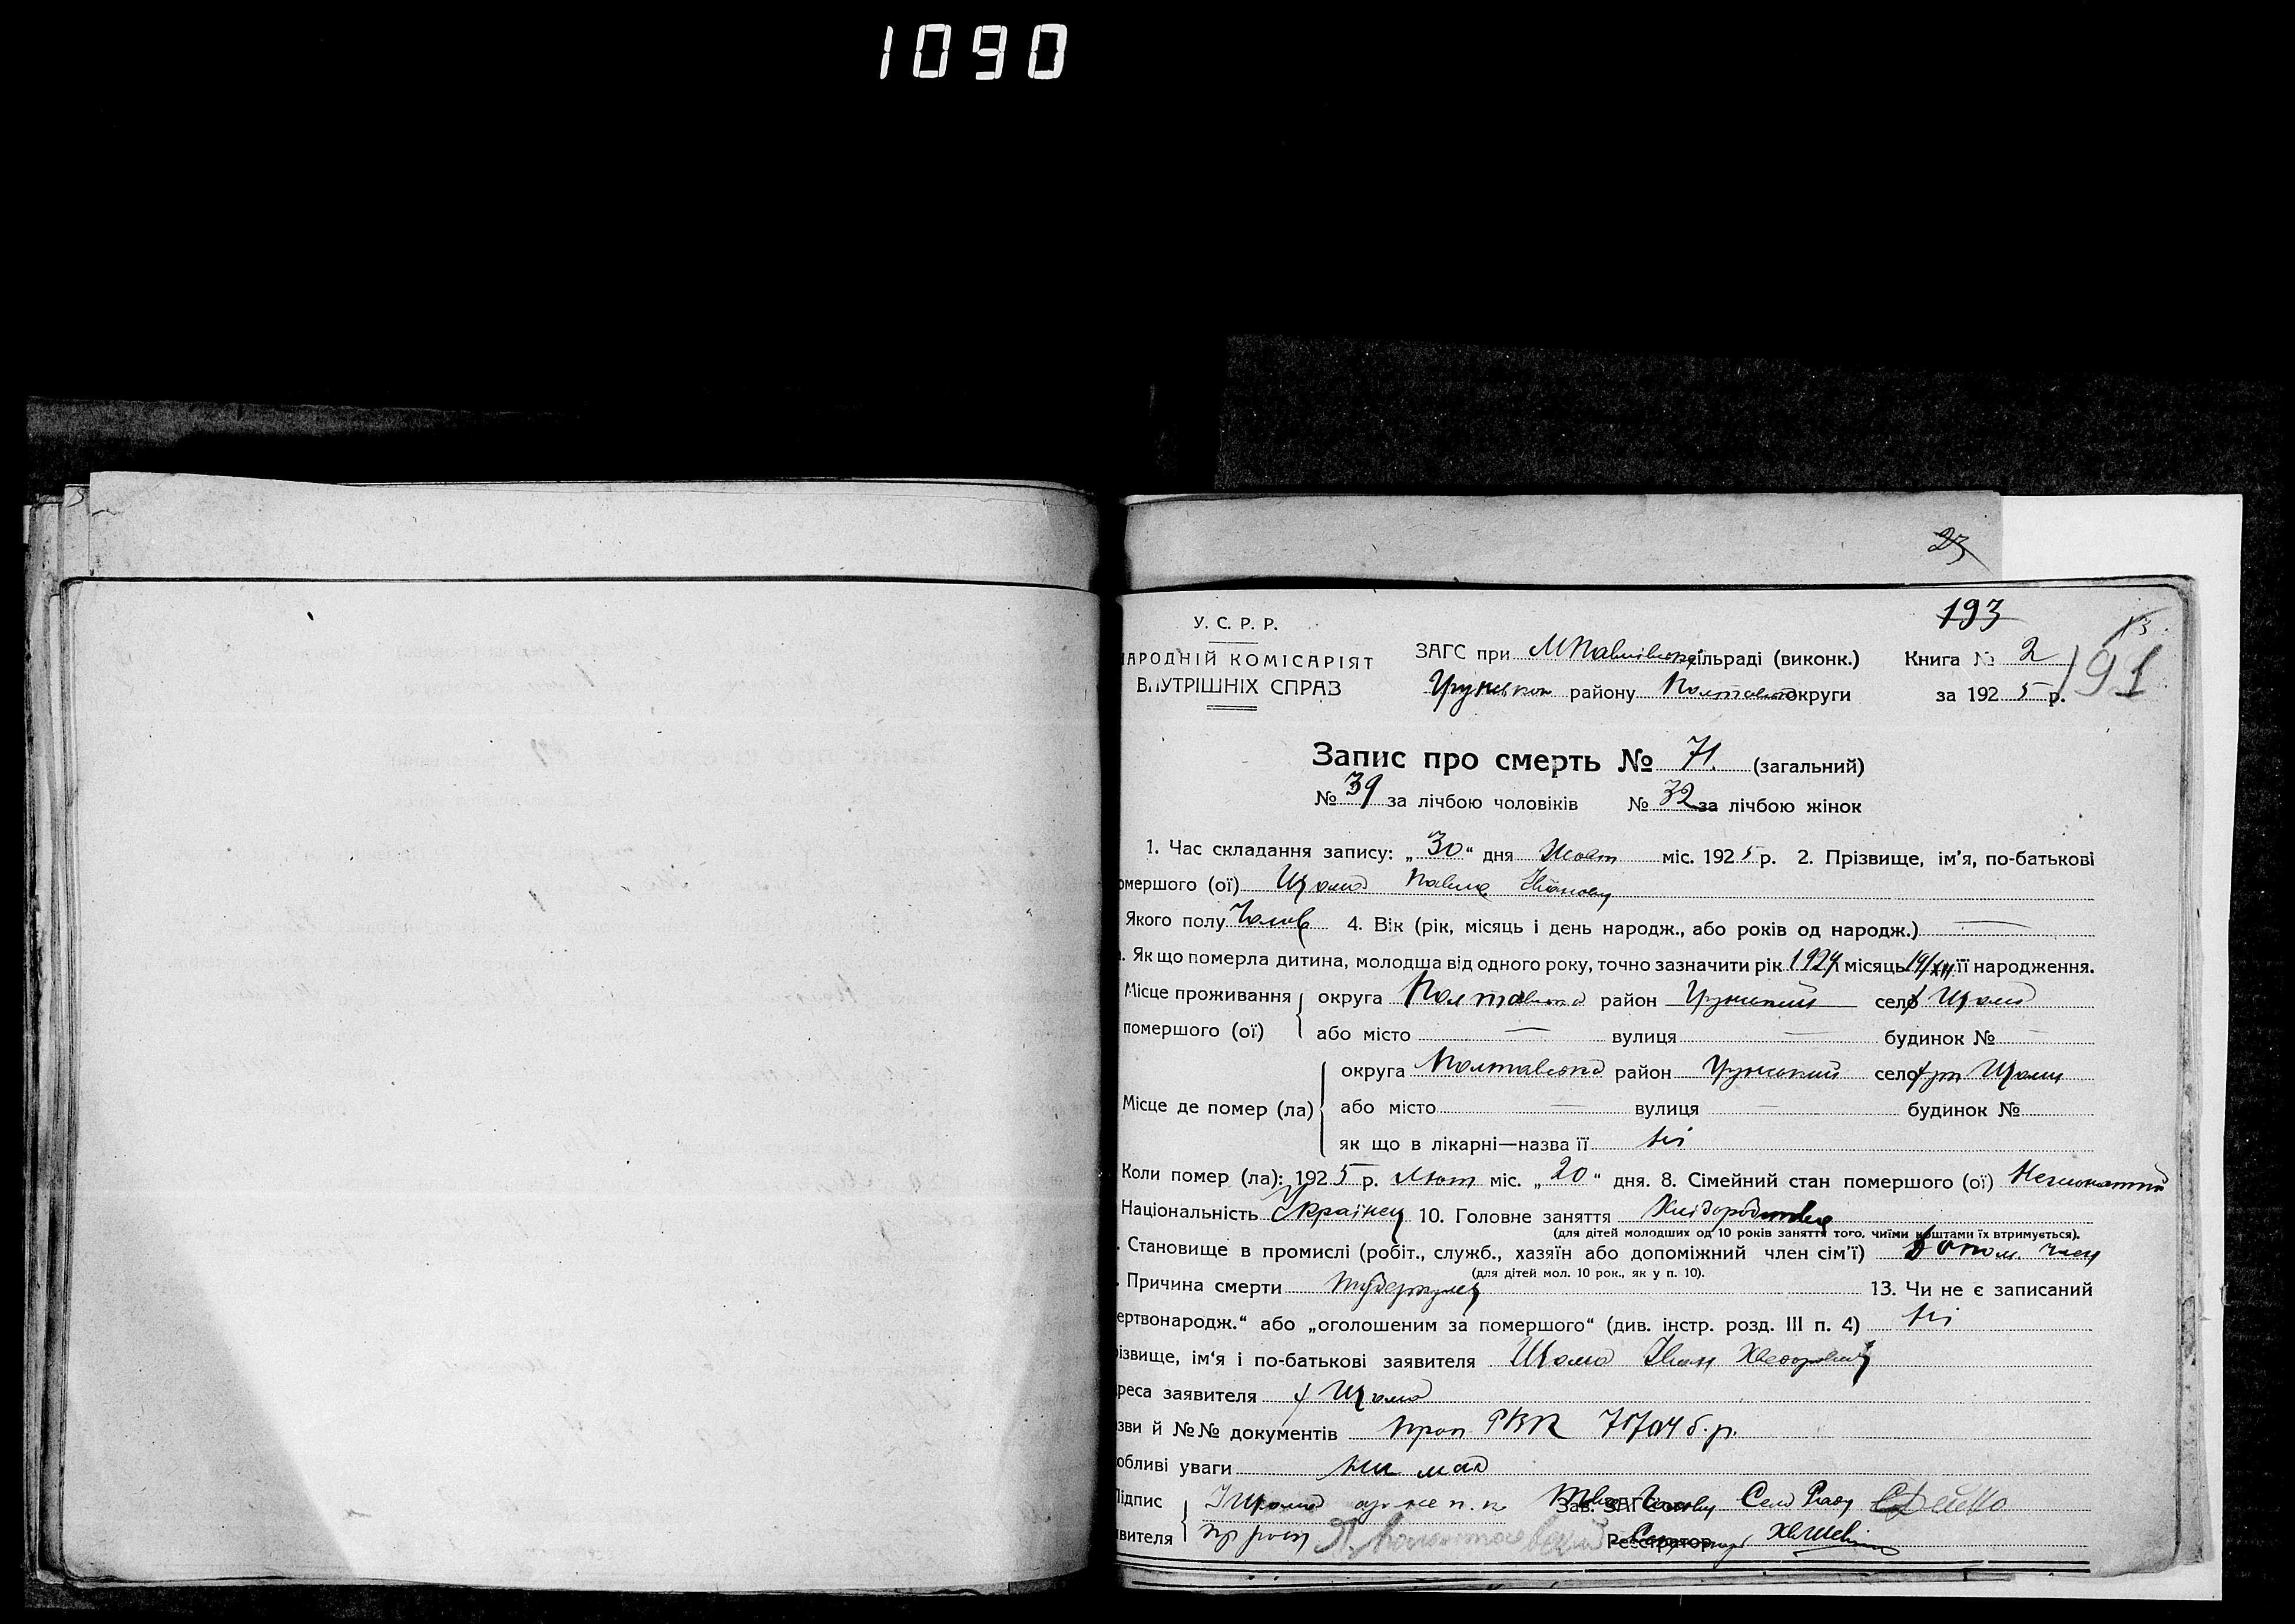 1090
23
193
13
191
У. С. Р. Р.
АРОДНІЙ КОМІСАРІЯТ
ВНУТРІШНІХ СПРАВ
ЗАГС при МПавлівської сільраді (виконк.) Книга № 2
Грунськом району Полтавської округи за 1925 р.
Запис про смерть № 71. (загальний)
№ 39 за лічбою чоловіків № 32 за лічбою жінок
1. Час складання запису: „30“ дня Жовт міс. 1925 р. 2. Прізвище, ім'я, по-батькові
омершого (ої) Цьома Павло Іванович
Якого полу Чолов 4. Вік (рік, місяць і день народж., або років од народж.) —
. Як що померла дитина, молодша від одного року, точно зазначити рік 1924 місяць 14/XII її народження.
Місце проживання округа Полтавська район Грунський село х Цьома
помершого (ої) або місто — вулиця — будинок № —
округа Полтавська район Грунський село хут Цьоми
Місце де помер (ла) або місто — вулиця — будинок №
як що в лікарні—назва її ні
Коли помер (ла): 1925 р. Лют міс. „20“ дня. 8. Сімейний стан помершого (ої) Нежонатий
Національність Українец 10. Головне заняття Хлібородство
(для дітей молодших од 10 років заняття того, чиїми коштами їх втримується).
. Становище в промислі (робіт., служб., хазяїн або допоміжний член сім'ї) допом. член
(для дітей мол. 10 рок., як у п. 10).
. Причина смерти туберкулез 13. Чи не є записаний
ертвонародж.“ або „оголошеним за помершого“ (див. інстр. розд. III п. 4) ні
різвище, ім'я і по-батькові заявителя Цьома Іван Хведорович
реса заявителя х Цьома
зви й №№ документів РВК
обливі уваги ни має
Підпис І Цьома Зав. ЗАГС'ом Голову Сел Ради
явителя Реєстратор